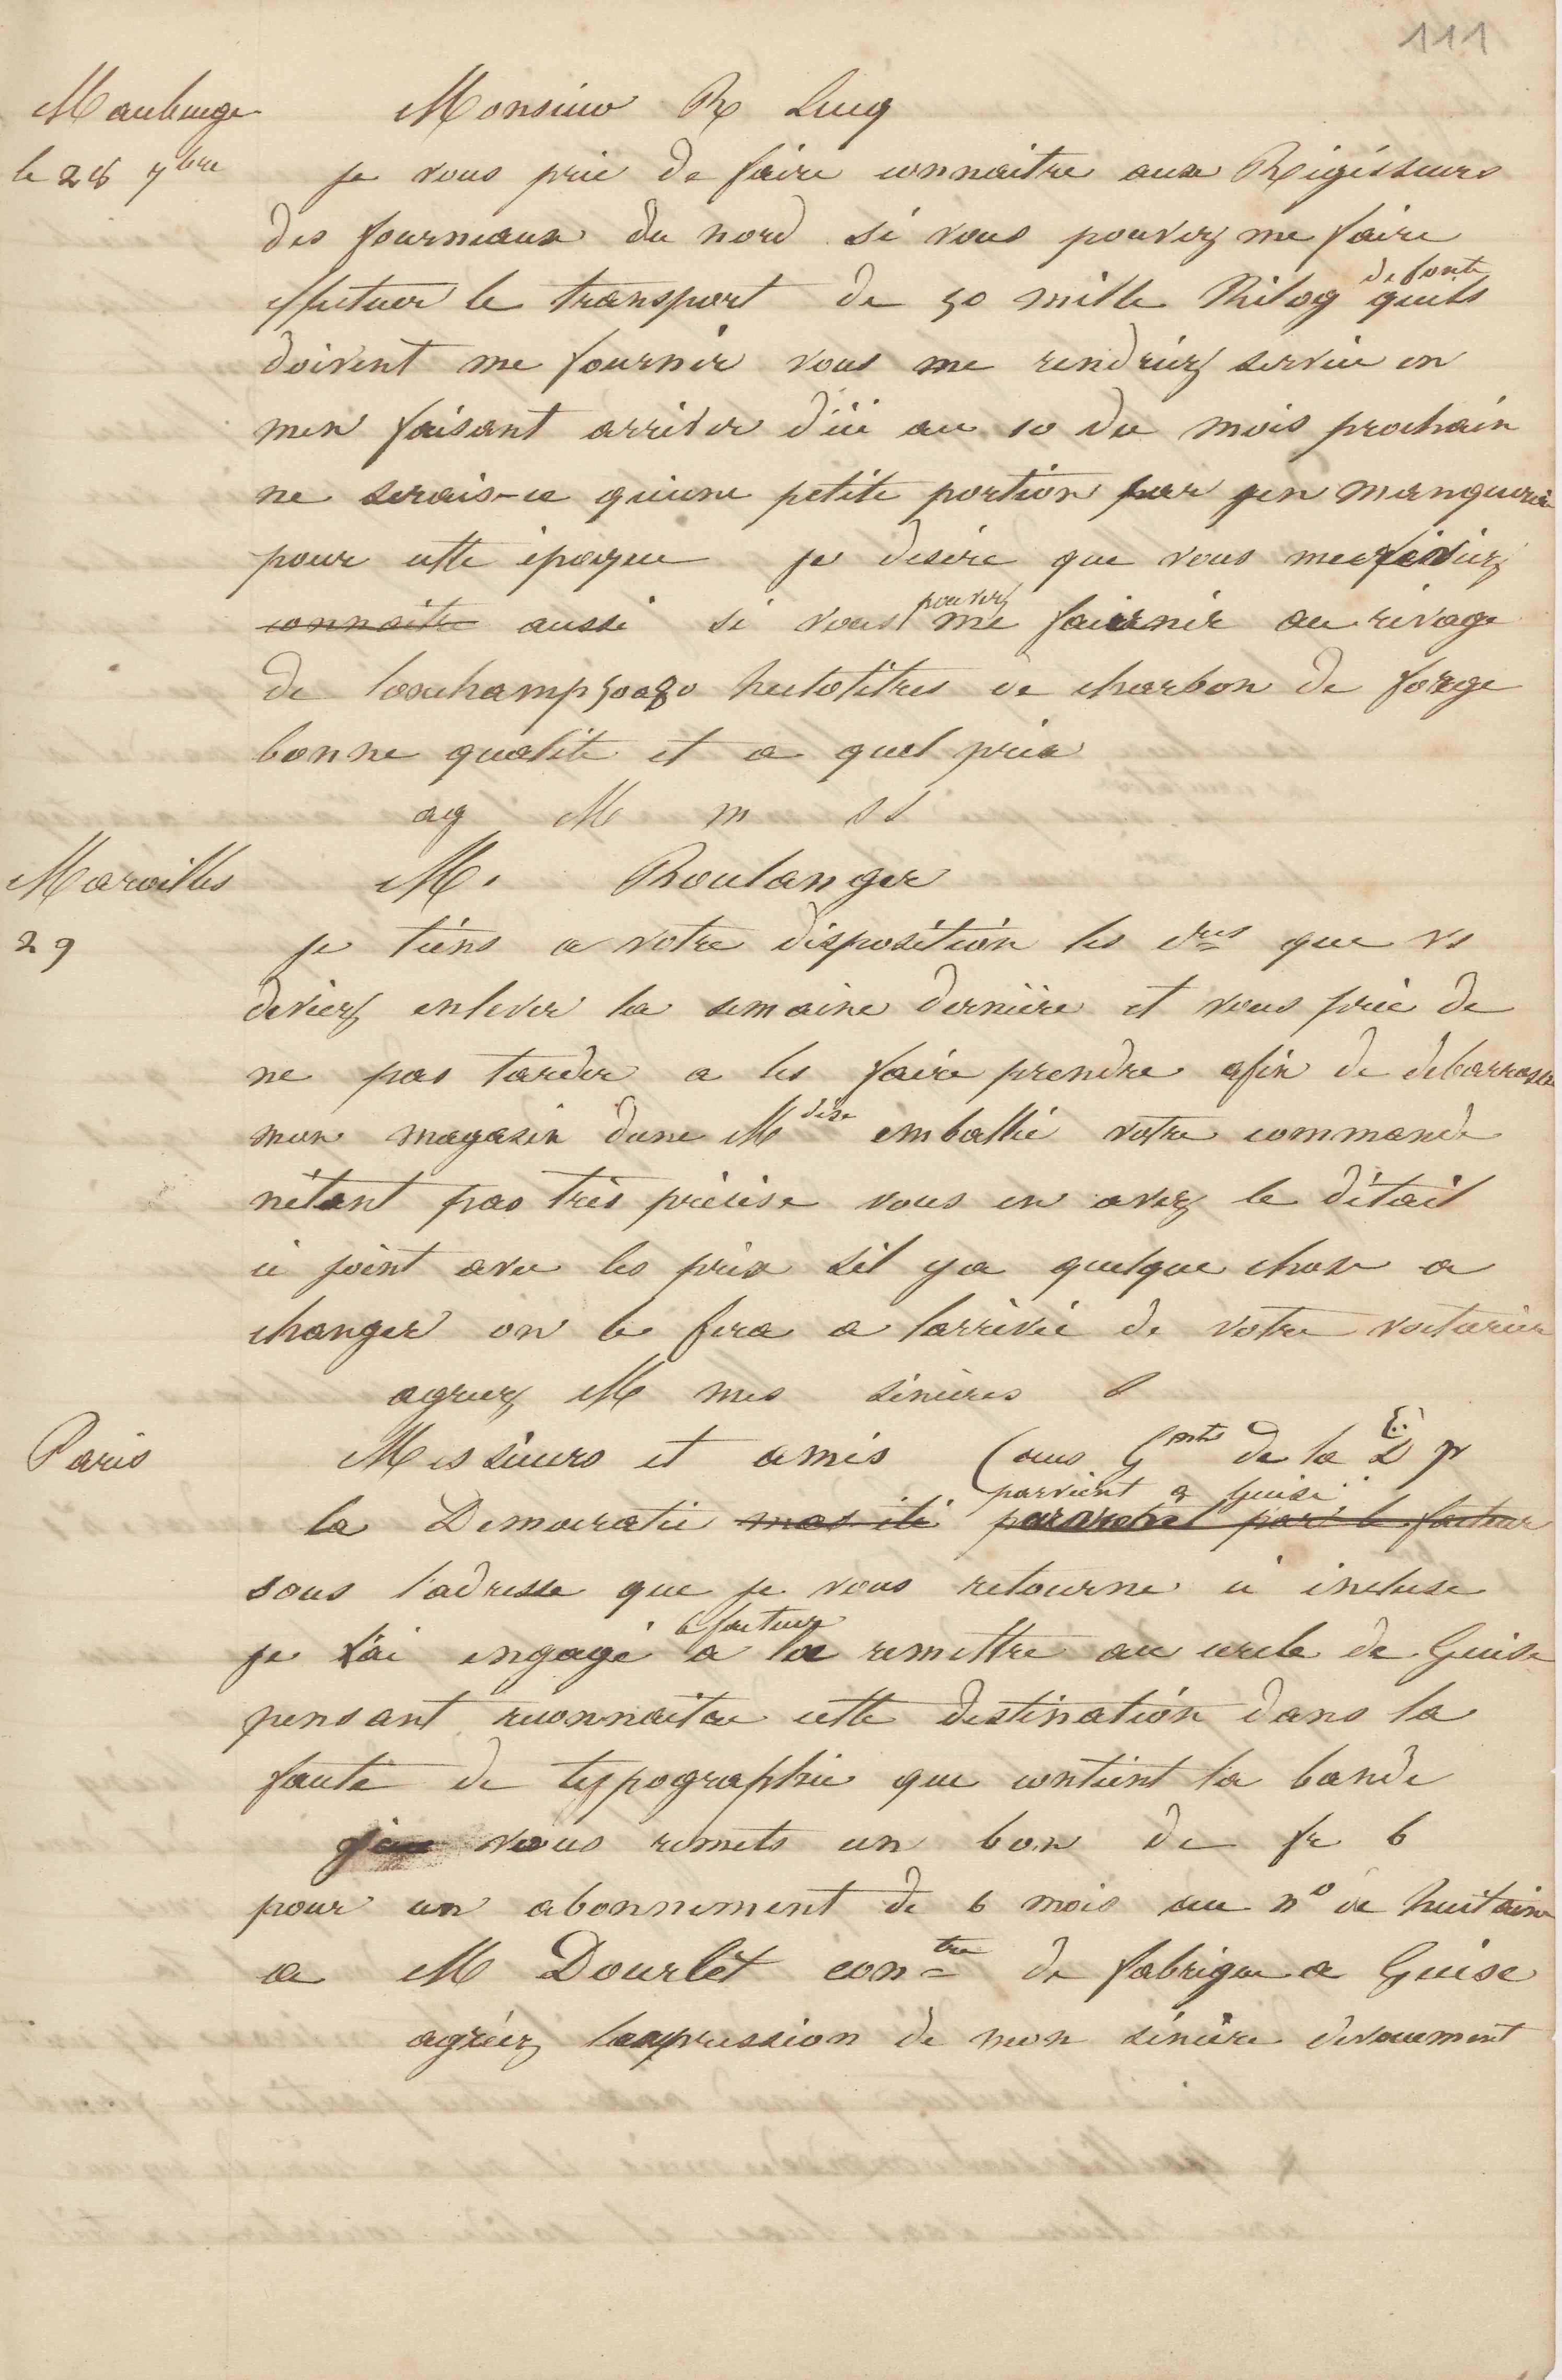 111
Maubeuge
Monsieur R Lucq
le 28 7bre
je vous prie de faire connaitre aux Régisseurs
des fourneaux du nord si vous pouvez me faire
effectuer le transport de 50 mille Kilog de fonte quils
doivent me fournir vous me rendriez service en
men faisant arriver d'ici au 10 du mois prochain
ne serais-ce qu'une petite portion car jen manquerai
pour cette époque je desire que vous me disiez
connaitre aussi si vous pouvez me fournir au rivage
de lonchamp 50 a 80 hectolitres de charbon de forge
bonne qualité et a quel prix
ag M m s s
Maroilles
M. Boulanger
29
je tiens a votre disposition les que vs
deviez enlever la semaine dernière et vous prie de
ne pas tarder a les faire prendre afin de debarrasser
mon magasin dune Mdise emballée votre commande
nétant pas très précise vous en avez le détail
ci joint avec les prix sil y a quelque chose a
changer on le fera a larrivée de votre voiturier
agreez M mes sincères s
Paris
Messieurs et amis (aux Gants de la D p
la Democratie mas été parvient a Guise par le facteur
sous l'adresse que je vous retourne ci incluse
je l'ai engagé le facteur a la remettre au cercle de Guise
pensant reconnaitre cette destination dans la
faute de typographie que contient la bande
je vous remets un bon de fr 6
pour un abonnement de 6 mois au n° de huitaine
a M Dourlet contre de fabrique a Guise
agréez lexpression de mon sincère devouement